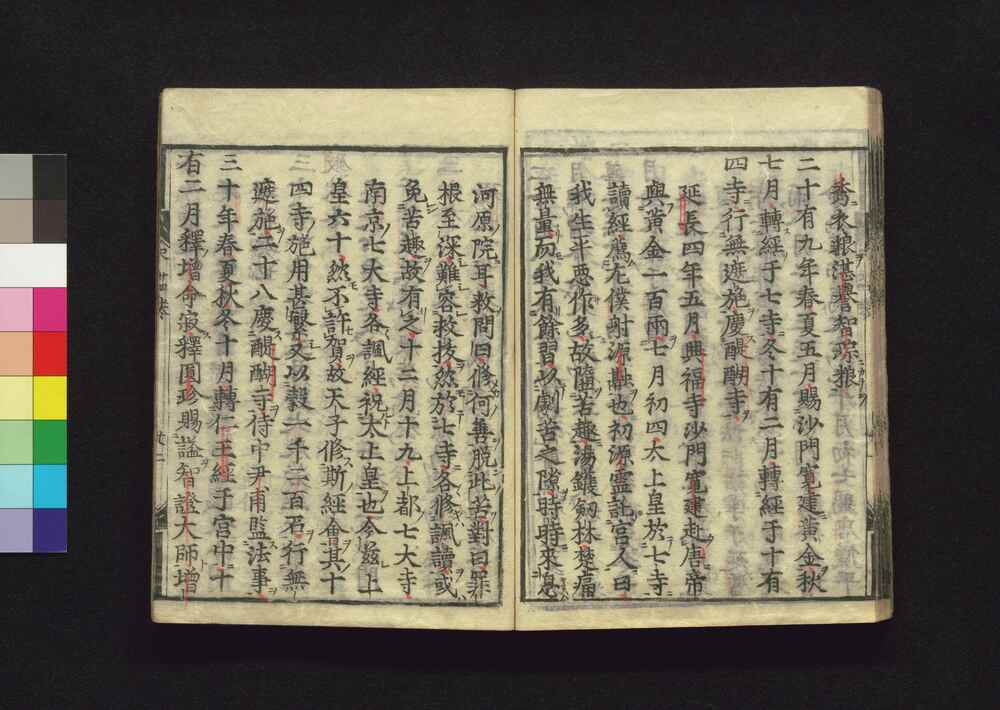 喬衣粮湛譽智琮粮
二十有九年春夏五月賜沙門寛建黄金秋
七月轉經于七寺冬十有二月轉經于十有
四寺行無遮施慶醍醐寺
延長四年五月興福寺沙門寛建赴唐帝
與黄金一百兩七月初四太上皇於七寺
讀經薦左僕射源融也初源靈託宮人曰
我生平惡作多故墮苦趣湯鑊劒林楚痛
無量而我有餘習以劇苦之隙時時來息
河原院耳救問曰修何善脱此苦對曰罪
根至深難容救抜然於七寺各修諷讀或
免苦趣故有之十二月十九上都七大寺
南京七大寺各諷經祝太上皇也今玆上
皇六十然不許賀故天子修斯經會其十
四寺施用甚繁又以穀一千三百石行無
遮施二十八慶醍醐寺侍中尹甫監法事
三十年春夏秋冬十月轉仁王經于宮中十
有二月釋増命寂釋圓珍賜諡智證大師増